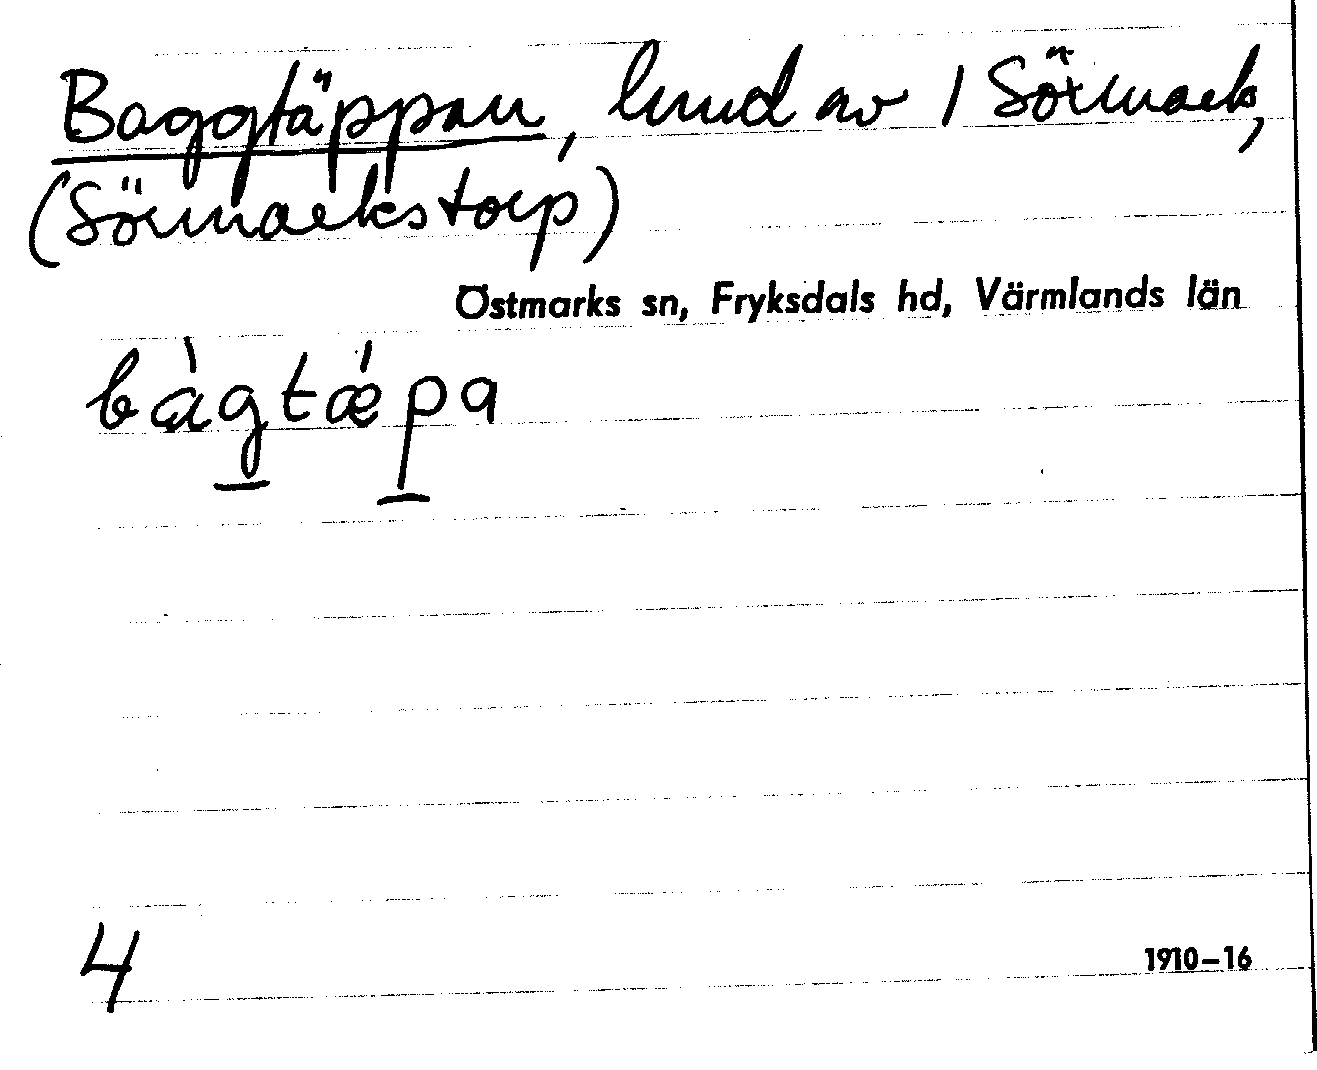 Baggtäppan, lund av 1 Sörmark,
(Sörmarkstorp)
Östmarks sn, Fryksdals hd, Värmlands län
bàgtǽpa
4
1910–16